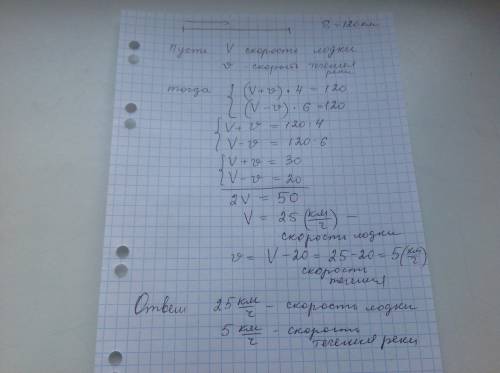 S-120км
Пусть V скорость лодки
v скорость течения
реки
тогда { (V+v)·4 = 120
(V-v)·6 = 120
{ V+v = 120:4
V-v = 120:6
{ V+v = 30
V-v = 20
2V = 50
V = 25 (км/ч) –
скорость лодки
v = V-20 = 25-20 = 5 (км/ч)
скорость
течения
Ответ 25 км/ч – скорость лодки
5 км/ч – скорость
течения реки